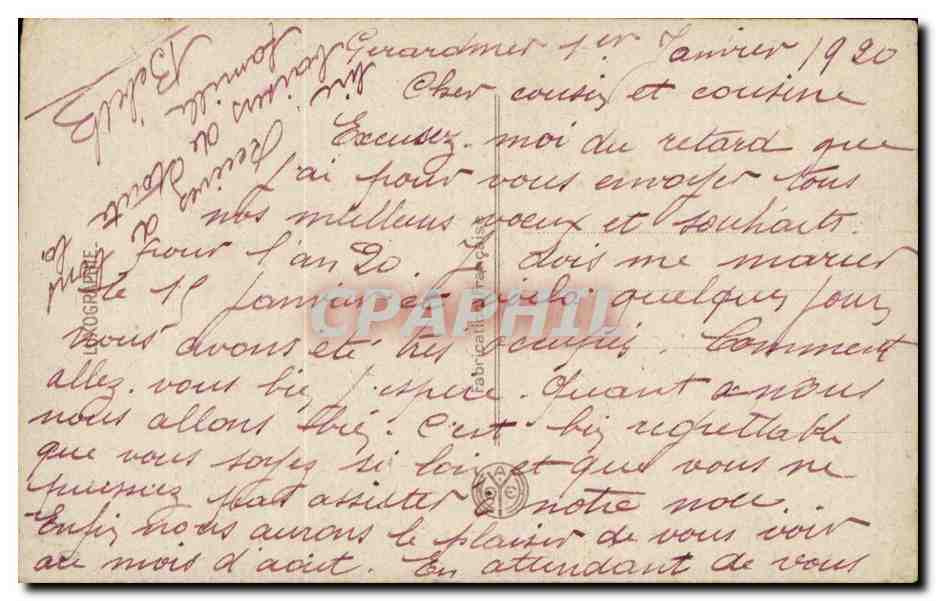 Gerardmer 1er Janvier 1920
Cher cousin et cousine
Excusez-moi du retard que
j'ai pour vous envoyer tous
nos meilleurs voeux et souhaits
pour l'an 20. Je dois me marier
le 15 Janvier et voila quelques jours
nous avons été très occupés. Comment
allez-vous bien j'espère. Quant a nous
nous allons bien. C'est bien regrettable
que vous soyez si loin et que vous ne
puissiez pas assister à notre noce
Enfin nous aurons le plaisir de vous voir
au mois d'aout. En attendant de vous
lire
Recevez de toute
la famille
baisers
LUXOGRAPHIE
Fabrication Française
CPAPHIL